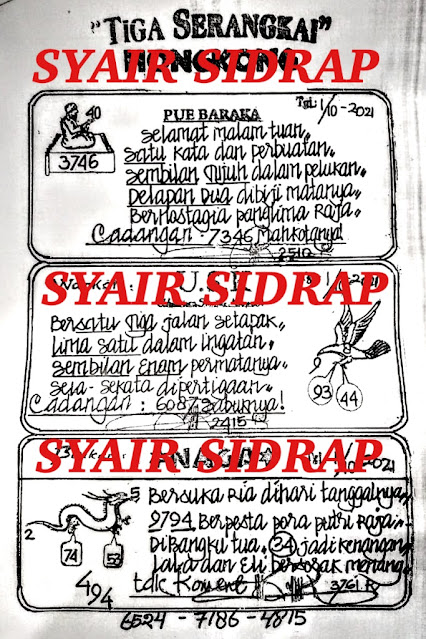 "TIGA SERANGKAI"
HONGKONG
SYAIR SIDRAP
PUE BARAKA
Tgl: 1/10-2021
40
3746
Selamat malam tuan,,
Satu kata dan perbuatan,,
Sembilan Tujuh dalam pelukan,,
Delapan Dua dibiji matanya,,
Berhastagia panglima Raja,,
Cadangan: -7346 Mahkotanya!
2510
SYAIR SIDRAP
Bersatu Tiga jalan setapak,,
Lima satu dalam ingatan,,
Sembilan Enam permatanya,,
Seia-sekata dipertigaan,,
Cadangan: 6087 Sabuknya!
2415
9
93
44
SYAIR SIDRAP
NAGA
2021
Bersuka Ria dihari tanggalnya,,
9794 Berpesta pora putri Raja,,
Dibangku tua. 34 jadi kenangan,,
menang
tdk Koment
3761.R
5
2
74
52
494
6524 - 7186 - 4815